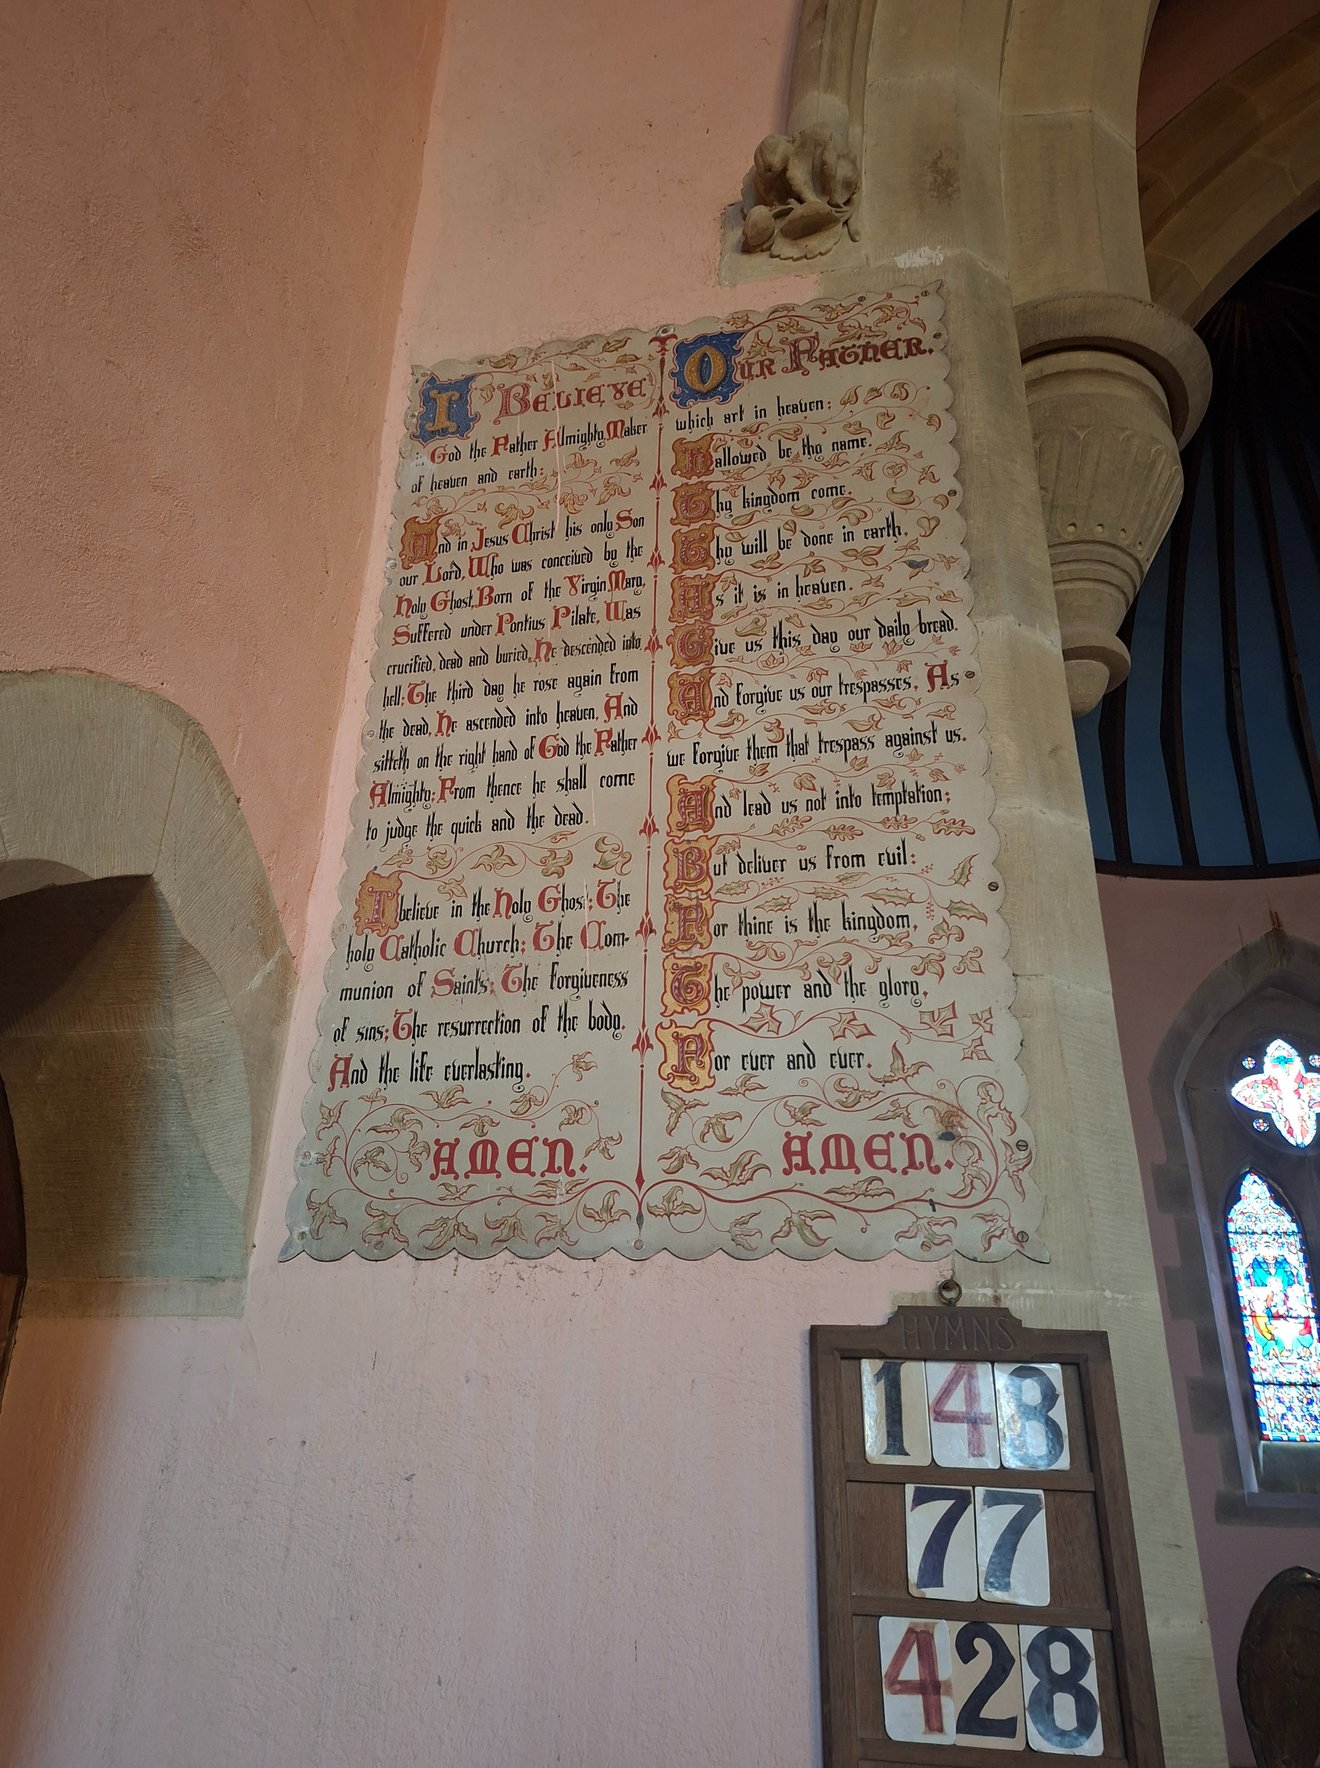 I BELIEVE
in God the Father Almighty, Maker
of heaven and earth:
And in Jesus Christ his only Son
our Lord, Who was conceived by the
Holy Ghost, Born of the Virgin Mary,
Suffered under Pontius Pilate, Was
crucified, dead and buried, He descended into
hell; The third day he rose again from
the dead, He ascended into heaven, And
sitteth on the right hand of God the Father
Almighty; From thence he shall come
to judge the quick and the dead.
I believe in the Holy Ghost; The
holy Catholic Church; The Com-
munion of Saints; The forgiveness
of sins; The resurrection of the body,
And the life everlasting.
AMEN.
OUR FATHER,
which art in heaven;
Hallowed be thy name.
Thy kingdom come.
Thy will be done in earth,
As it is in heaven.
Give us this day our daily bread.
And forgive us our trespasses, As
we forgive them that trespass against us.
And lead us not into temptation;
But deliver us from evil:
For thine is the kingdom,
The power and the glory,
For ever and ever.
AMEN.
HYMNS
148
77
428